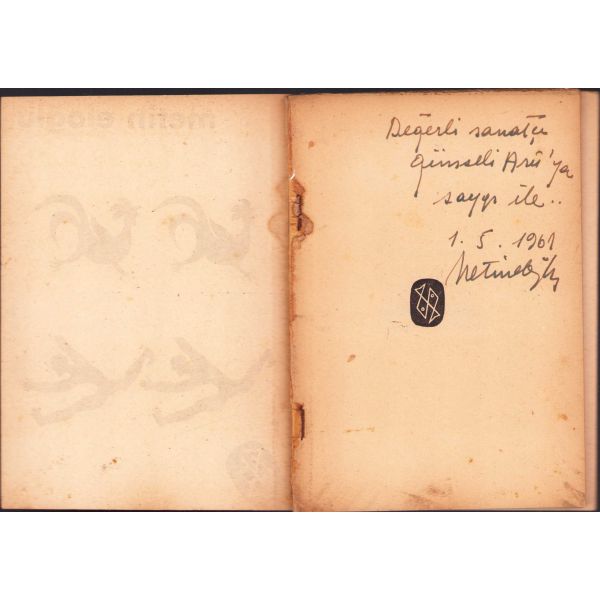 metin eloğlu
Değerli sanatçı
Günseli Arû'ya
saygı ile..
1. 5. 1961
Metineloğlu